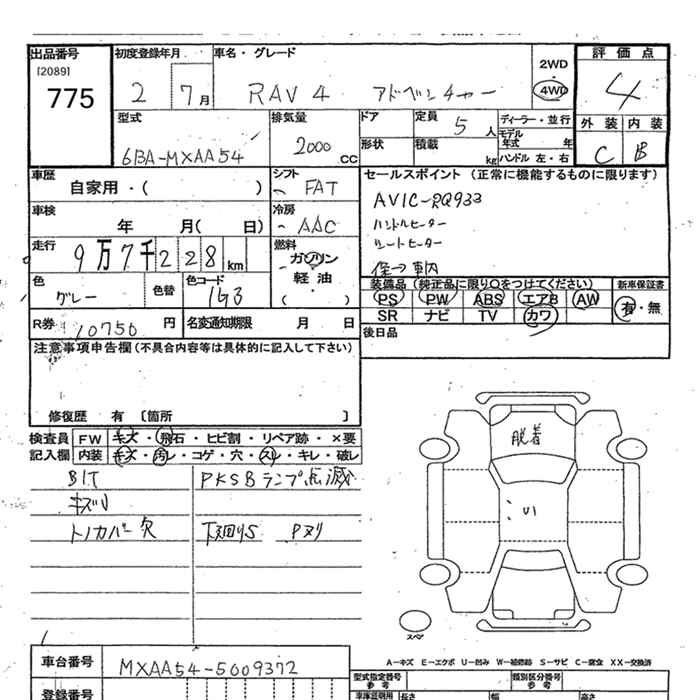 出品番号 初度登録年月 車名・グレード 2WD 評価点
[2089] 775 2 7月 RAV4 アドベンチャー 4WD 4
型式 排気量 ドア 定員 5人 ディーラー・並行 外装 内装
6BA-MXAA54 2000cc 形状 積載 kg モデル年式 年 C B
ハンドル 左・右
車歴 シフト セールスポイント (正常に機能するものに限ります)
自家用・( ) FAT
AVIC-RQ933
車検 冷房 ハンドルヒーター
年 月( 日) AAC シートヒーター
走行 9万7千228km 燃料 ガソリン
軽油・( )
装備品 (純正品に限り○をつけてください) 新車保証書
色 グレー 色替 色コード 1G3 PS PW ABS エアB AW 有・無
SR ナビ TV カワ
R券 10750円 名変通知期限 月 日 後日品
注意事項申告欄(不具合内容等は具体的に記入して下さい)
修復歴 有 〔箇所 〕
脱着
検査員 FW キズ・飛石・ヒビ割・リペア跡・×要
記入欄 内装 キズ・汚レ・コゲ・穴・スレ・キレ・破レ
BIT PKSBランプ点滅
キズU
トノカバー欠 下廻りS Pヌリ
U1
スペア
A-キズ E-エクボ U-凹み W-補修跡 S-サビ C-腐食 XX-交換済
車台番号 MXAA54-5009372 型式指定番号 参考 類別区分番号 参考
登録番号 車庫証明用 長さ 幅 高さ